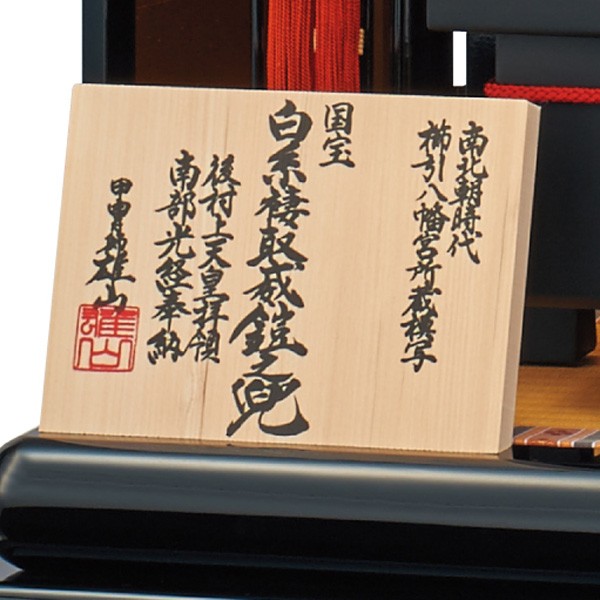 南北朝時代
櫛引八幡宮所蔵模写
国宝
白糸褄取威鎧之兜
後村上天皇拝領
南部光経奉納
甲冑師雄山
雄山